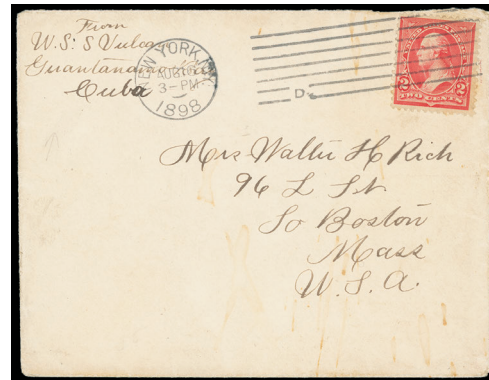 From
W.S. S Vulcan
Guantanamo
Cuba
NEW YORK, N.Y.
AUG 
3-PM
1898
D.
2 2
TWO CENTS
Mrs Walter H Rich
96 L St
So Boston
Mass
U.S.A.